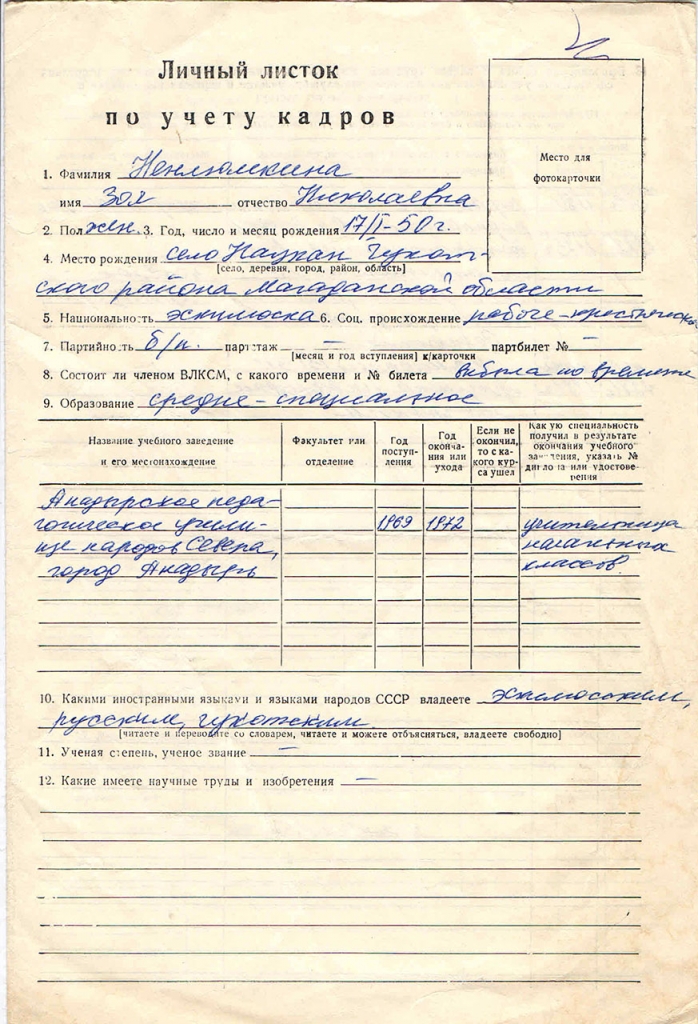 Личный листок
по учету кадров
Место для
фотокарточки
1. Фамилия Ненлюмкина
имя Зоя отчество Николаевна
2. Пол жен. 3. Год, число и месяц рождения 17/I-50г.
4. Место рождения село Наукан Чукот-
[село, деревня, город, район, область]
ского района Магаданской области
5. Национальность эскимоска 6. Соц. происхождение рабоче-крестьянское
7. Партийность б/п. партстаж — партбилет № —
[месяц и год вступления] к/карточки
8. Состоит ли членом ВЛКСМ, с какого времени и № билета выбыла по времени
9. Образование средне-специальное
Название учебного заведения и его местонахождение
Факультет или отделение
Год поступ- ления
Год оконча- ния или ухода
Если не окончил, то с ка- кого кур- са ушел
Какую специальность получил в результате окончания учебного заведения, указать № диплома или удостове- рения
Анадырское педа-
гогическое учили- 1969 1972 учительница
ще народов Севера, начальных
город Анадырь классов.
10. Какими иностранными языками и языками народов СССР владеете эскимосским,
русским, чукотским
[читаете и переводите со словарем, читаете и можете объясняться, владеете свободно]
11. Ученая степень, ученое звание —
12. Какие имеете научные труды и изобретения —